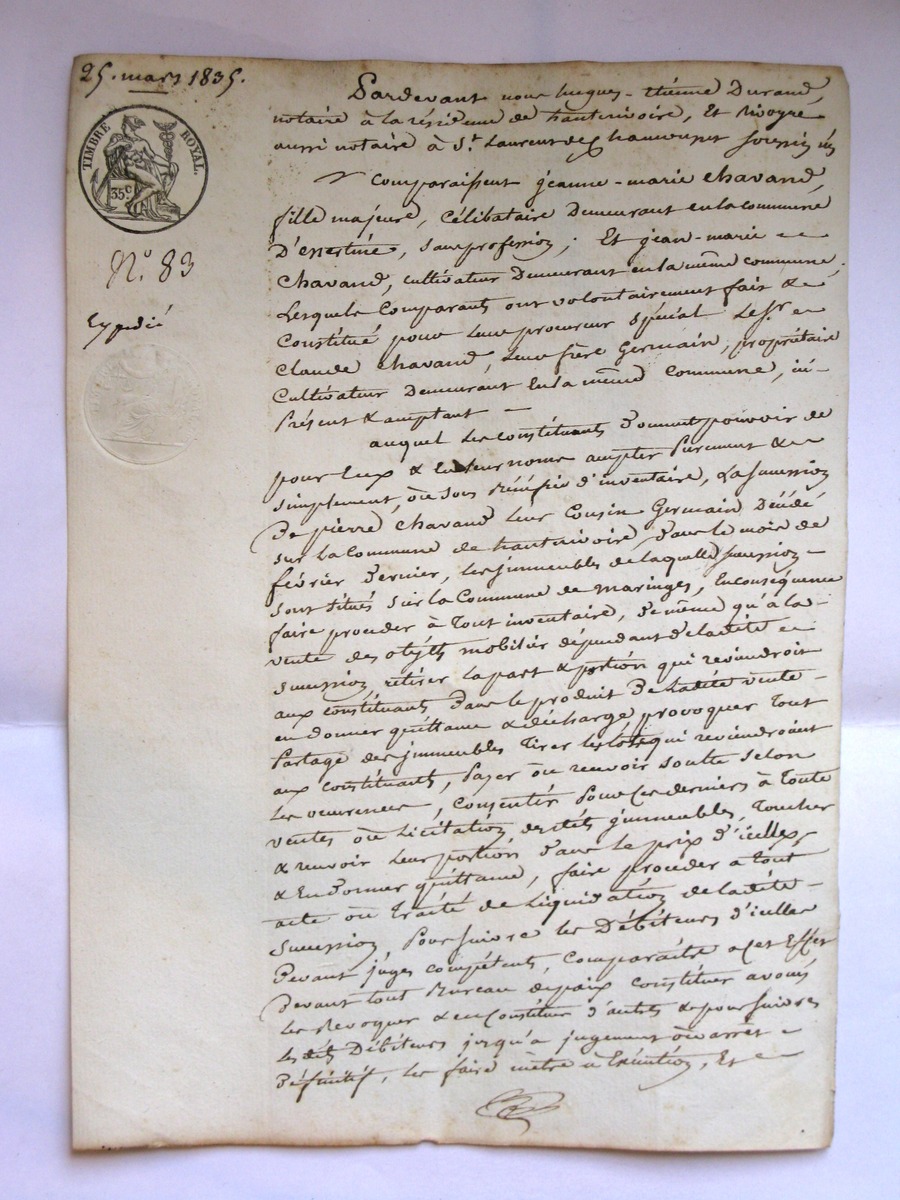 25. mars 1835.
TIMBRE ROYAL.
35c
N.° 83
Expédié
Pardevant nous hugues-etienne Durand,
notaire à la résidence de hauterivoire, Et Rivoyre
aussi notaire à St. Laurent de Chamousset soussignés
Comparaissent jeanne-marie Chavand,
fille majeure, Célibataire Demeurant en la commune
D'essertine, sans profession; Et jean-marie
Chavand, cultivateur Demeurant en la même commune,
Lesquels Comparants ont volontairement fait &
Constitué pour leur procureur spécial le Sr.
Claude Chavand, leur frère Germain, propriétaire
Cultivateur Demeurant En la même Commune, ici
Présent & acceptant
auquel Les constituants Donnent pouvoir de
pour Eux & En leur noms accepter Purement &
simplement, où sous Bénéfice d'inventaire, La succession
De pierre Chavand leur Cousin Germain Décédé
sur la Commune de hauterivoire, Dans le mois de
février Dernier, les immeubles de laquelle succession
sont situés sur la Commune de maringes, En conséquence
faire procéder à Tout inventaire, De même qu'à la
vente des objets mobilier dépendant de ladite
succession, retirer la part & portion qui reviendroit
aux constituants Dans le produit De Ladite vente
en donner quittance & décharge, provoquer Tout
Partage des immeubles Tirer les lots qui reviendroient
aux constituants, Payer où recevoir soulte selon
les occurences, Consentir Pour Ces derniers à Toute
ventes où Licitation, desdits immeubles, Toucher
& recevoir leur portion Dans le prix D'icelles,
& En Donner quittance, faire procéder à Tout
acte où Traité de Liquidation de ladite
succession Poursuivre les Débiteurs D'icelle
Devant juges compétents, Comparaitre a Cet Effet
devant tout Bureau de paix constituer avoués
les Revoquer & en Constituer d'autres & poursuivre
les dits Débiteurs jusqu'a jugement où arrêt
Définitif, les faire mètre à Exécution, Et